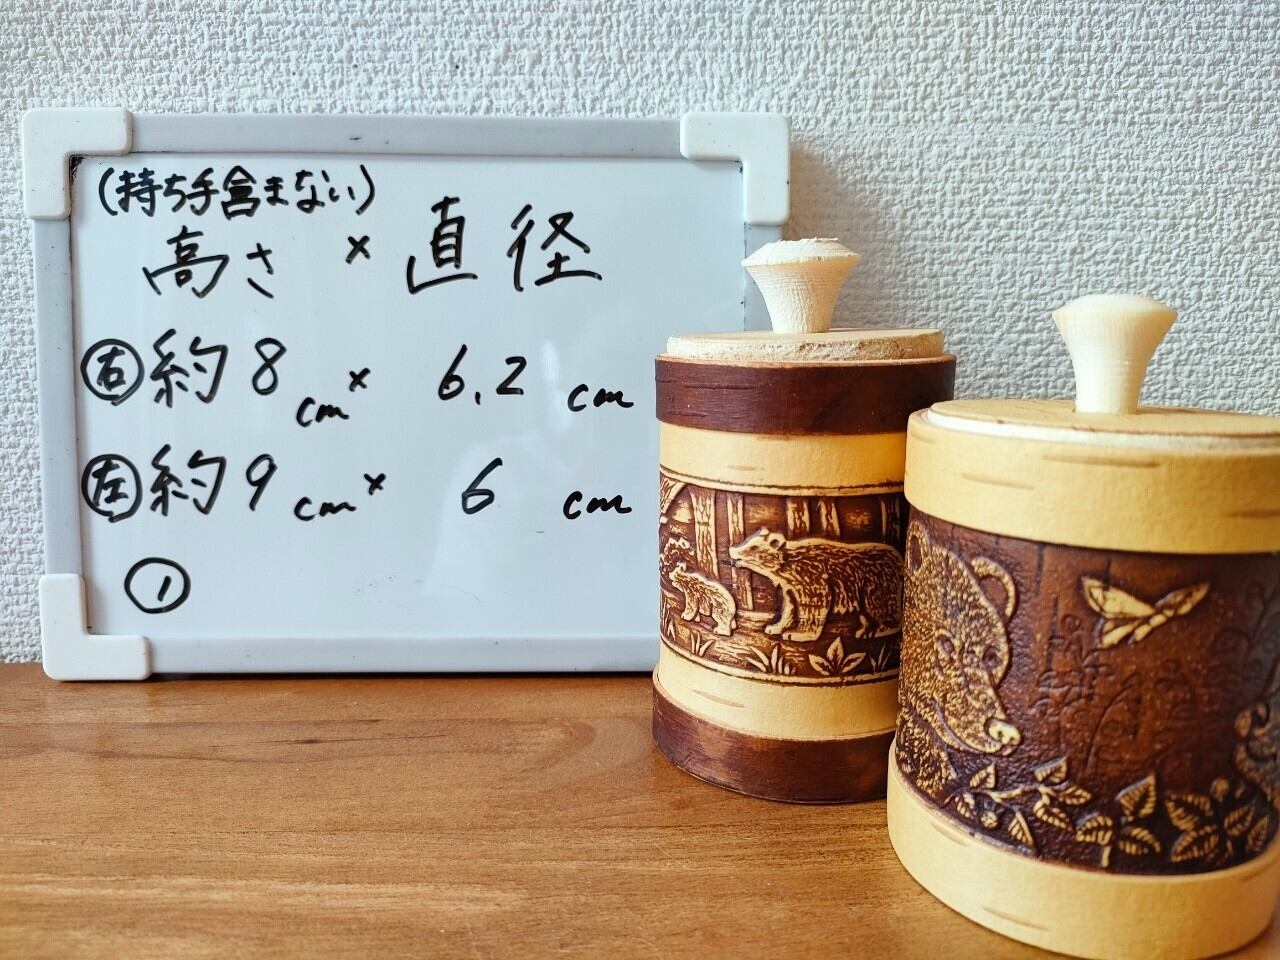 (持ち手含まない)
高さ × 直径
㊨約8cm× 6.2 cm
㊧約9cm× 6 cm
①